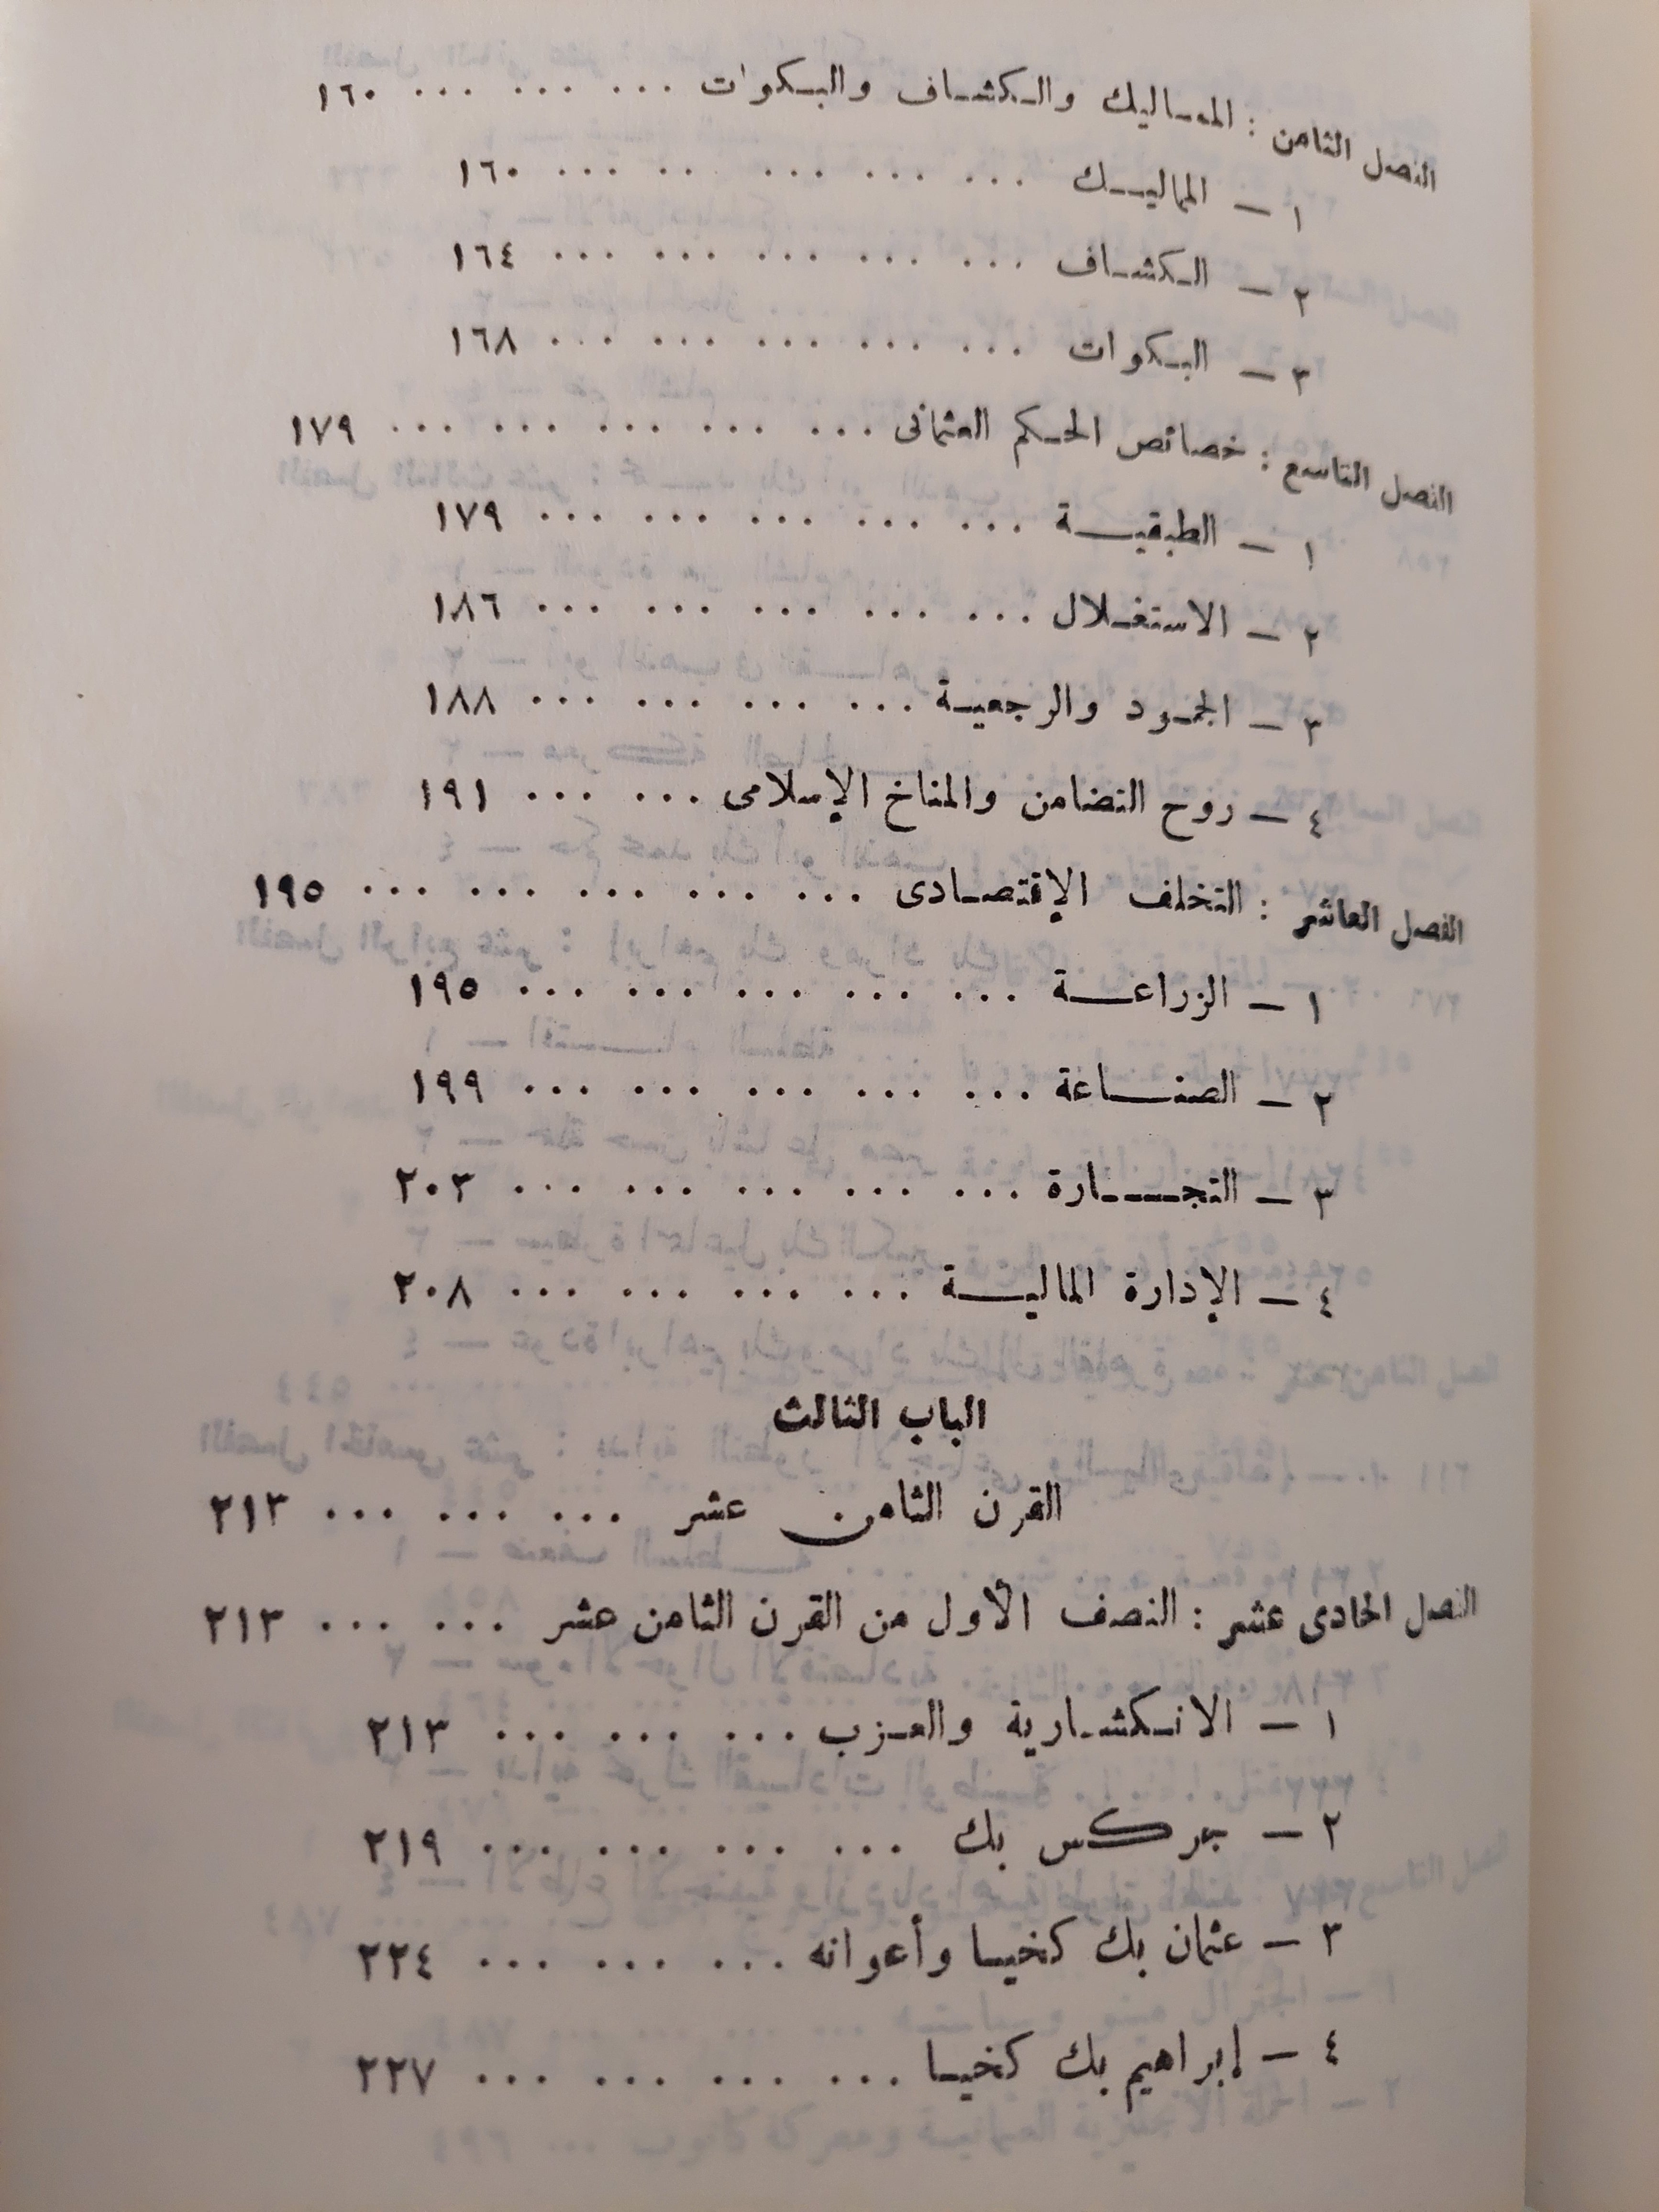 الفصل الثامن : المماليك والكشاف والبكوات ... ... ... ١٦٠
١ — المماليك ... ... ... ... ... ١٦٠
٢ — الكشاف ... ... ... ... ... ١٦٤
٣ — البكوات ... ... ... ... ... ١٦٨
الفصل التاسع : خصائص الحكم العثمانى ... ... ... ... ... ١٧٩
١ — الطبقية ... ... ... ... ... ١٧٩
٢ — الاستغلال ... ... ... ... ... ١٨٦
٣ — الجمود والرجعية ... ... ... ... ١٨٨
٤ — روح التضامن والمناخ الإسلامى ... ... ١٩١
الفصل العاشر : التخلف الإقتصادى ... ... ... ... ... ١٩٥
١ — الزراعة ... ... ... ... ... ١٩٥
٢ — الصناعة ... ... ... ... ... ١٩٩
٣ — التجارة ... ... ... ... ... ٢٠٣
٤ — الإدارة المالية ... ... ... ... ٢٠٨
الباب الثالث
القرن الثامن عشر ... ... ... ٢١٣
الفصل الحادى عشر : النصف الأول من القرن الثامن عشر ... ... ٢١٣
١ — الانكشارية والعزب ... ... ... ٢١٣
٢ — جركس بك ... ... ... ... ٢١٩
٣ — عثمان بك كخيا وأعوانه ... ... ... ٢٢٤
٤ — إبراهيم بك كخيا ... ... ... ... ٢٢٧